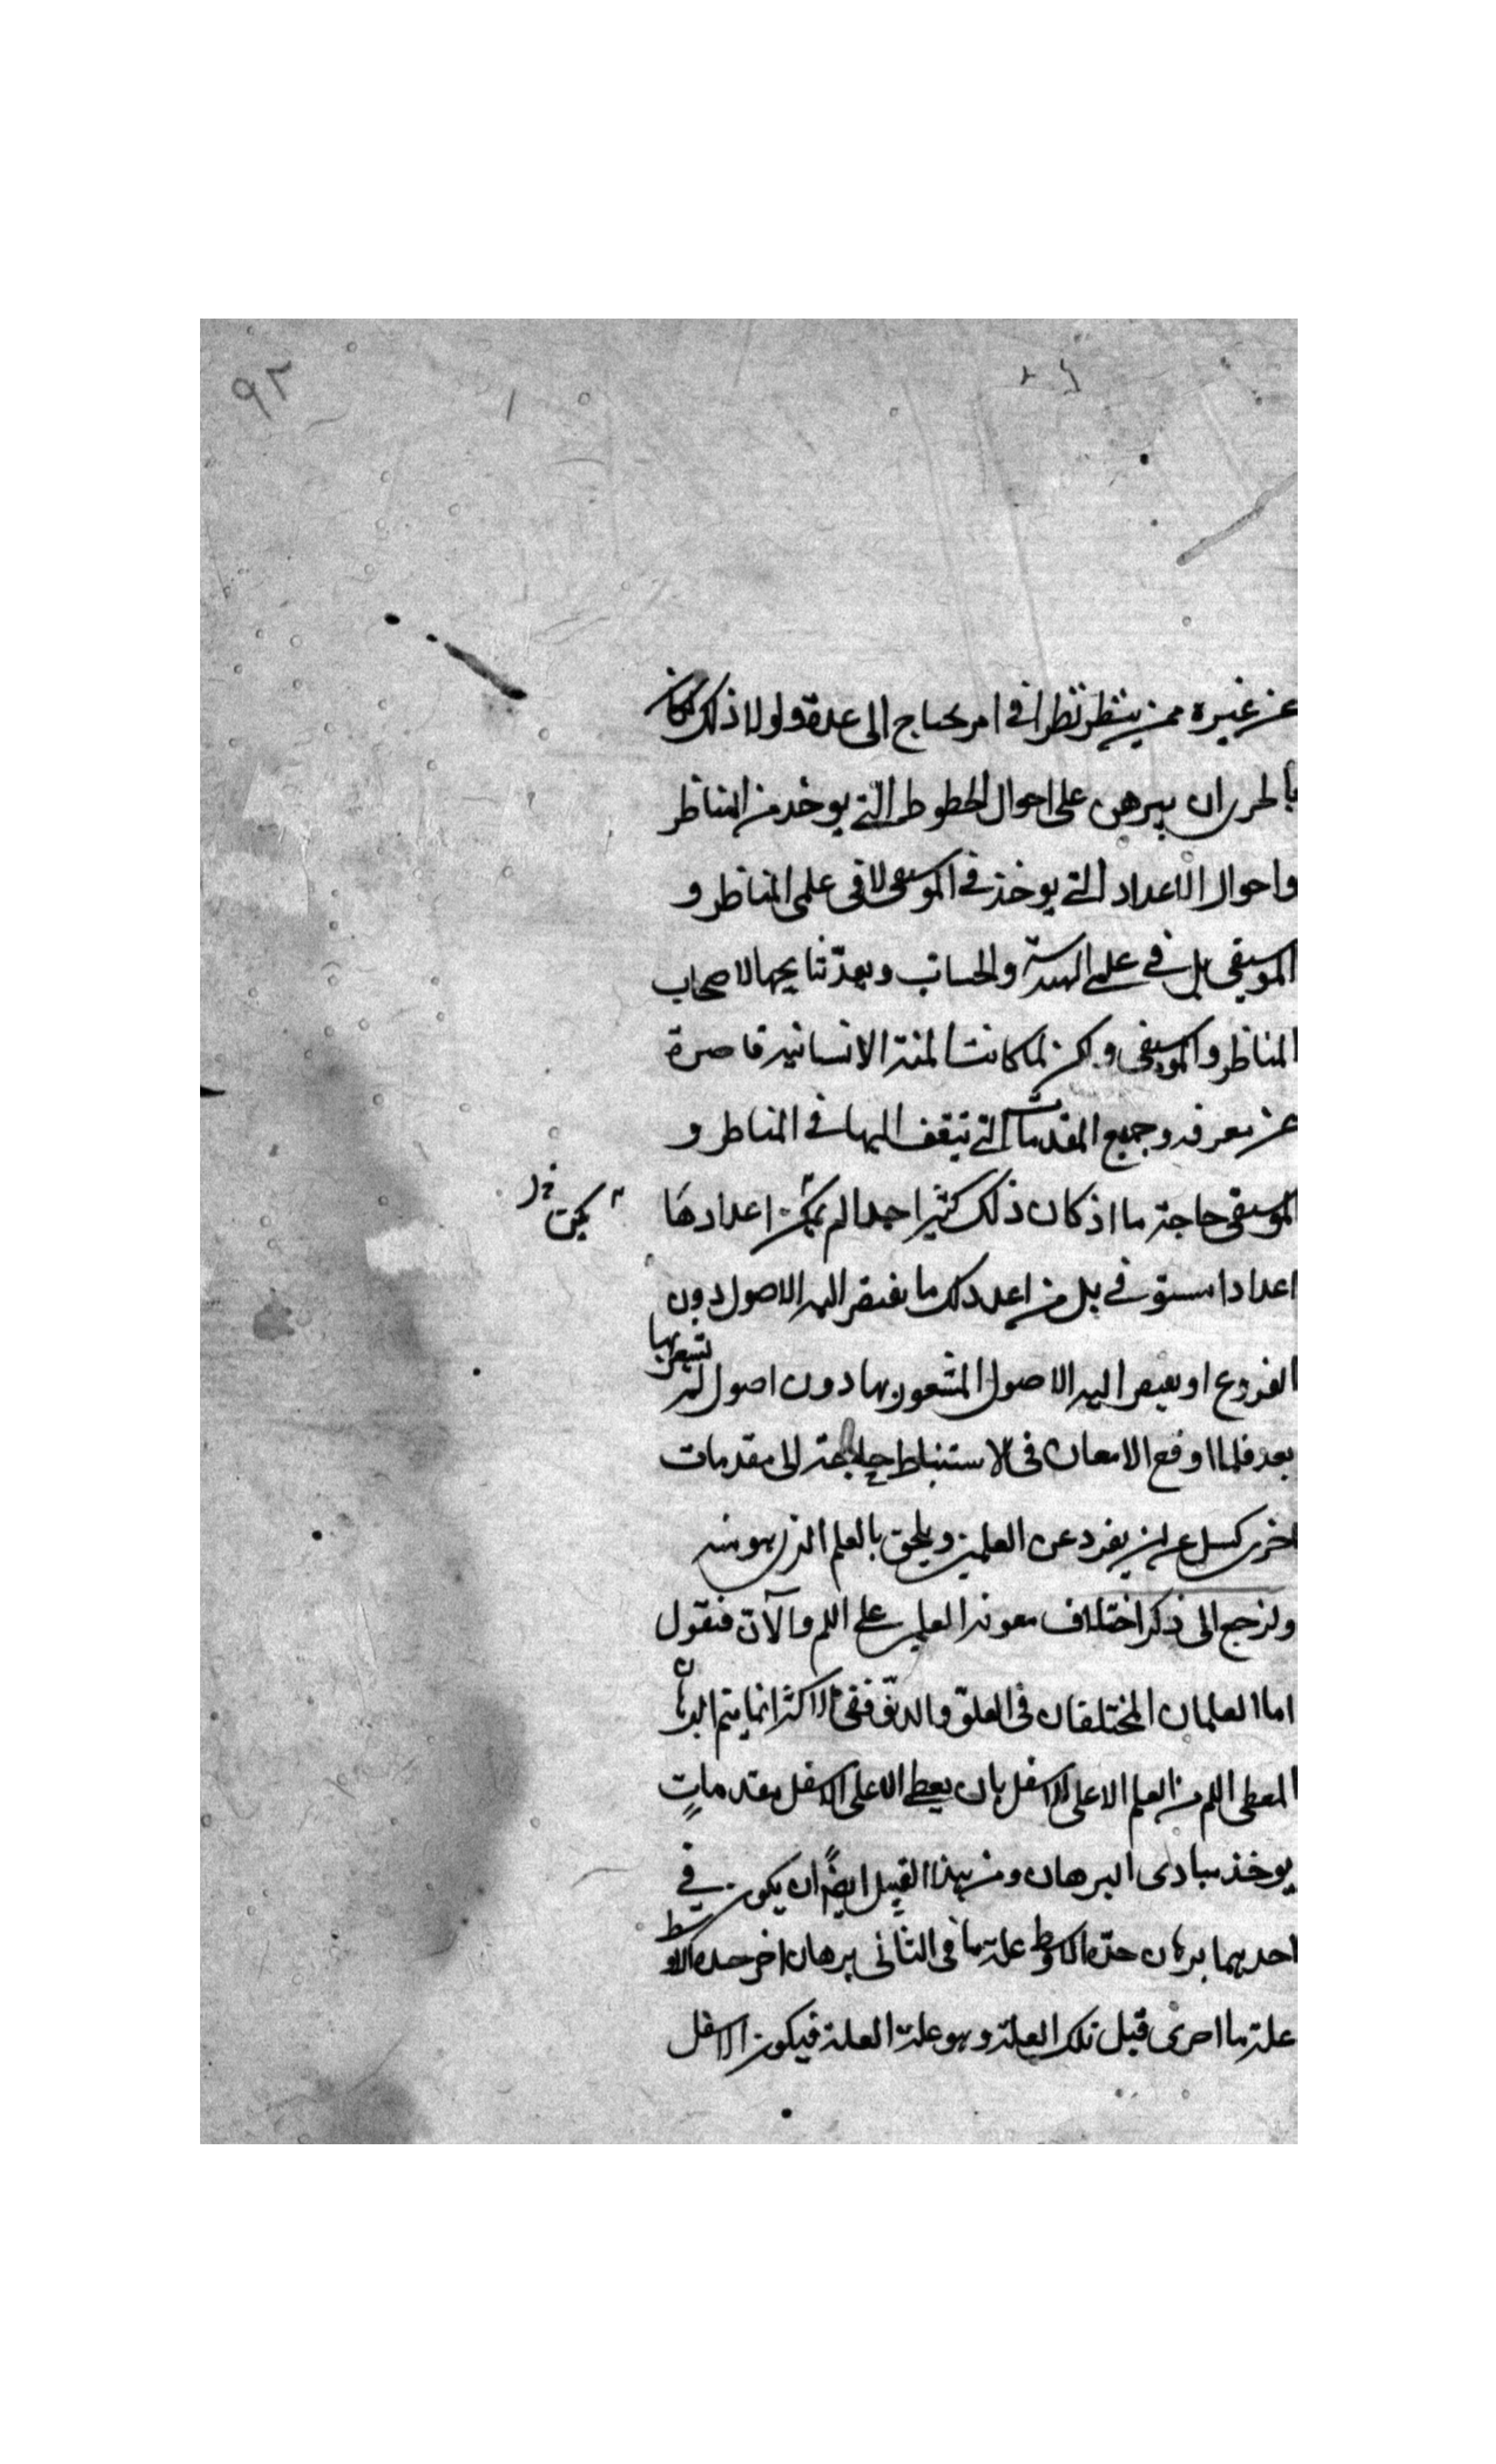 ٩٢
عن غيره ممن ينظر نظرا في امر يحتاج الى عدة ولولا ذلك لكان
بالحرى ان يبرهن على احوال الخطوط التي يوخذ من المناظر
واحوال الاعداد التي يوخذ في الموسيقى لا في علمى المناظر و
الموسيقى بل في علمى الهندسة والحساب ويعد نتايجها لاصحاب
المناظر والموسيقى ولكن لما كانت المنة الانسانيه قاصرة
عن معرفة وجميع المقدمات التي يتقف اليها في المناظر و
الموسيقى حاجة ما اذ كان ذلك كثيرا جدا لم يمكن اعدادها
يمكن
اعدادا مستوفى بل من اعد ذلك ما يفتقر اليه الاصول دون
الفروع او يفتقر اليه الاصول المشعور بها دون اصول لم يشعر بها
بعد فلما اوقع الامعان في الاستنباط حاجة الى مقدمات
اخرى كسل عن ان يفرد عن العلمين ويلحق بالعلم الذى هو منه
ولنرجع الى ذكر اختلاف معونة العلمين على اللم والان فنقول
اما العلمان المختلفان في العلو والدنو ففي الاكثر انما يتم البرهان
المعطى اللم من العلم الاعلى للاسفل بان يعطى الاعلى الاسفل مقدمات
يوخذ مبادى البرهان ومن هذا القبيل ايضا ان يكون في
احديهما برهان حده الاوسط علة ما في الثانى برهان اخر حده الاوسط
علة ما اخرى قبل تلك العلة وهو علة العلة فيكون الاسفل